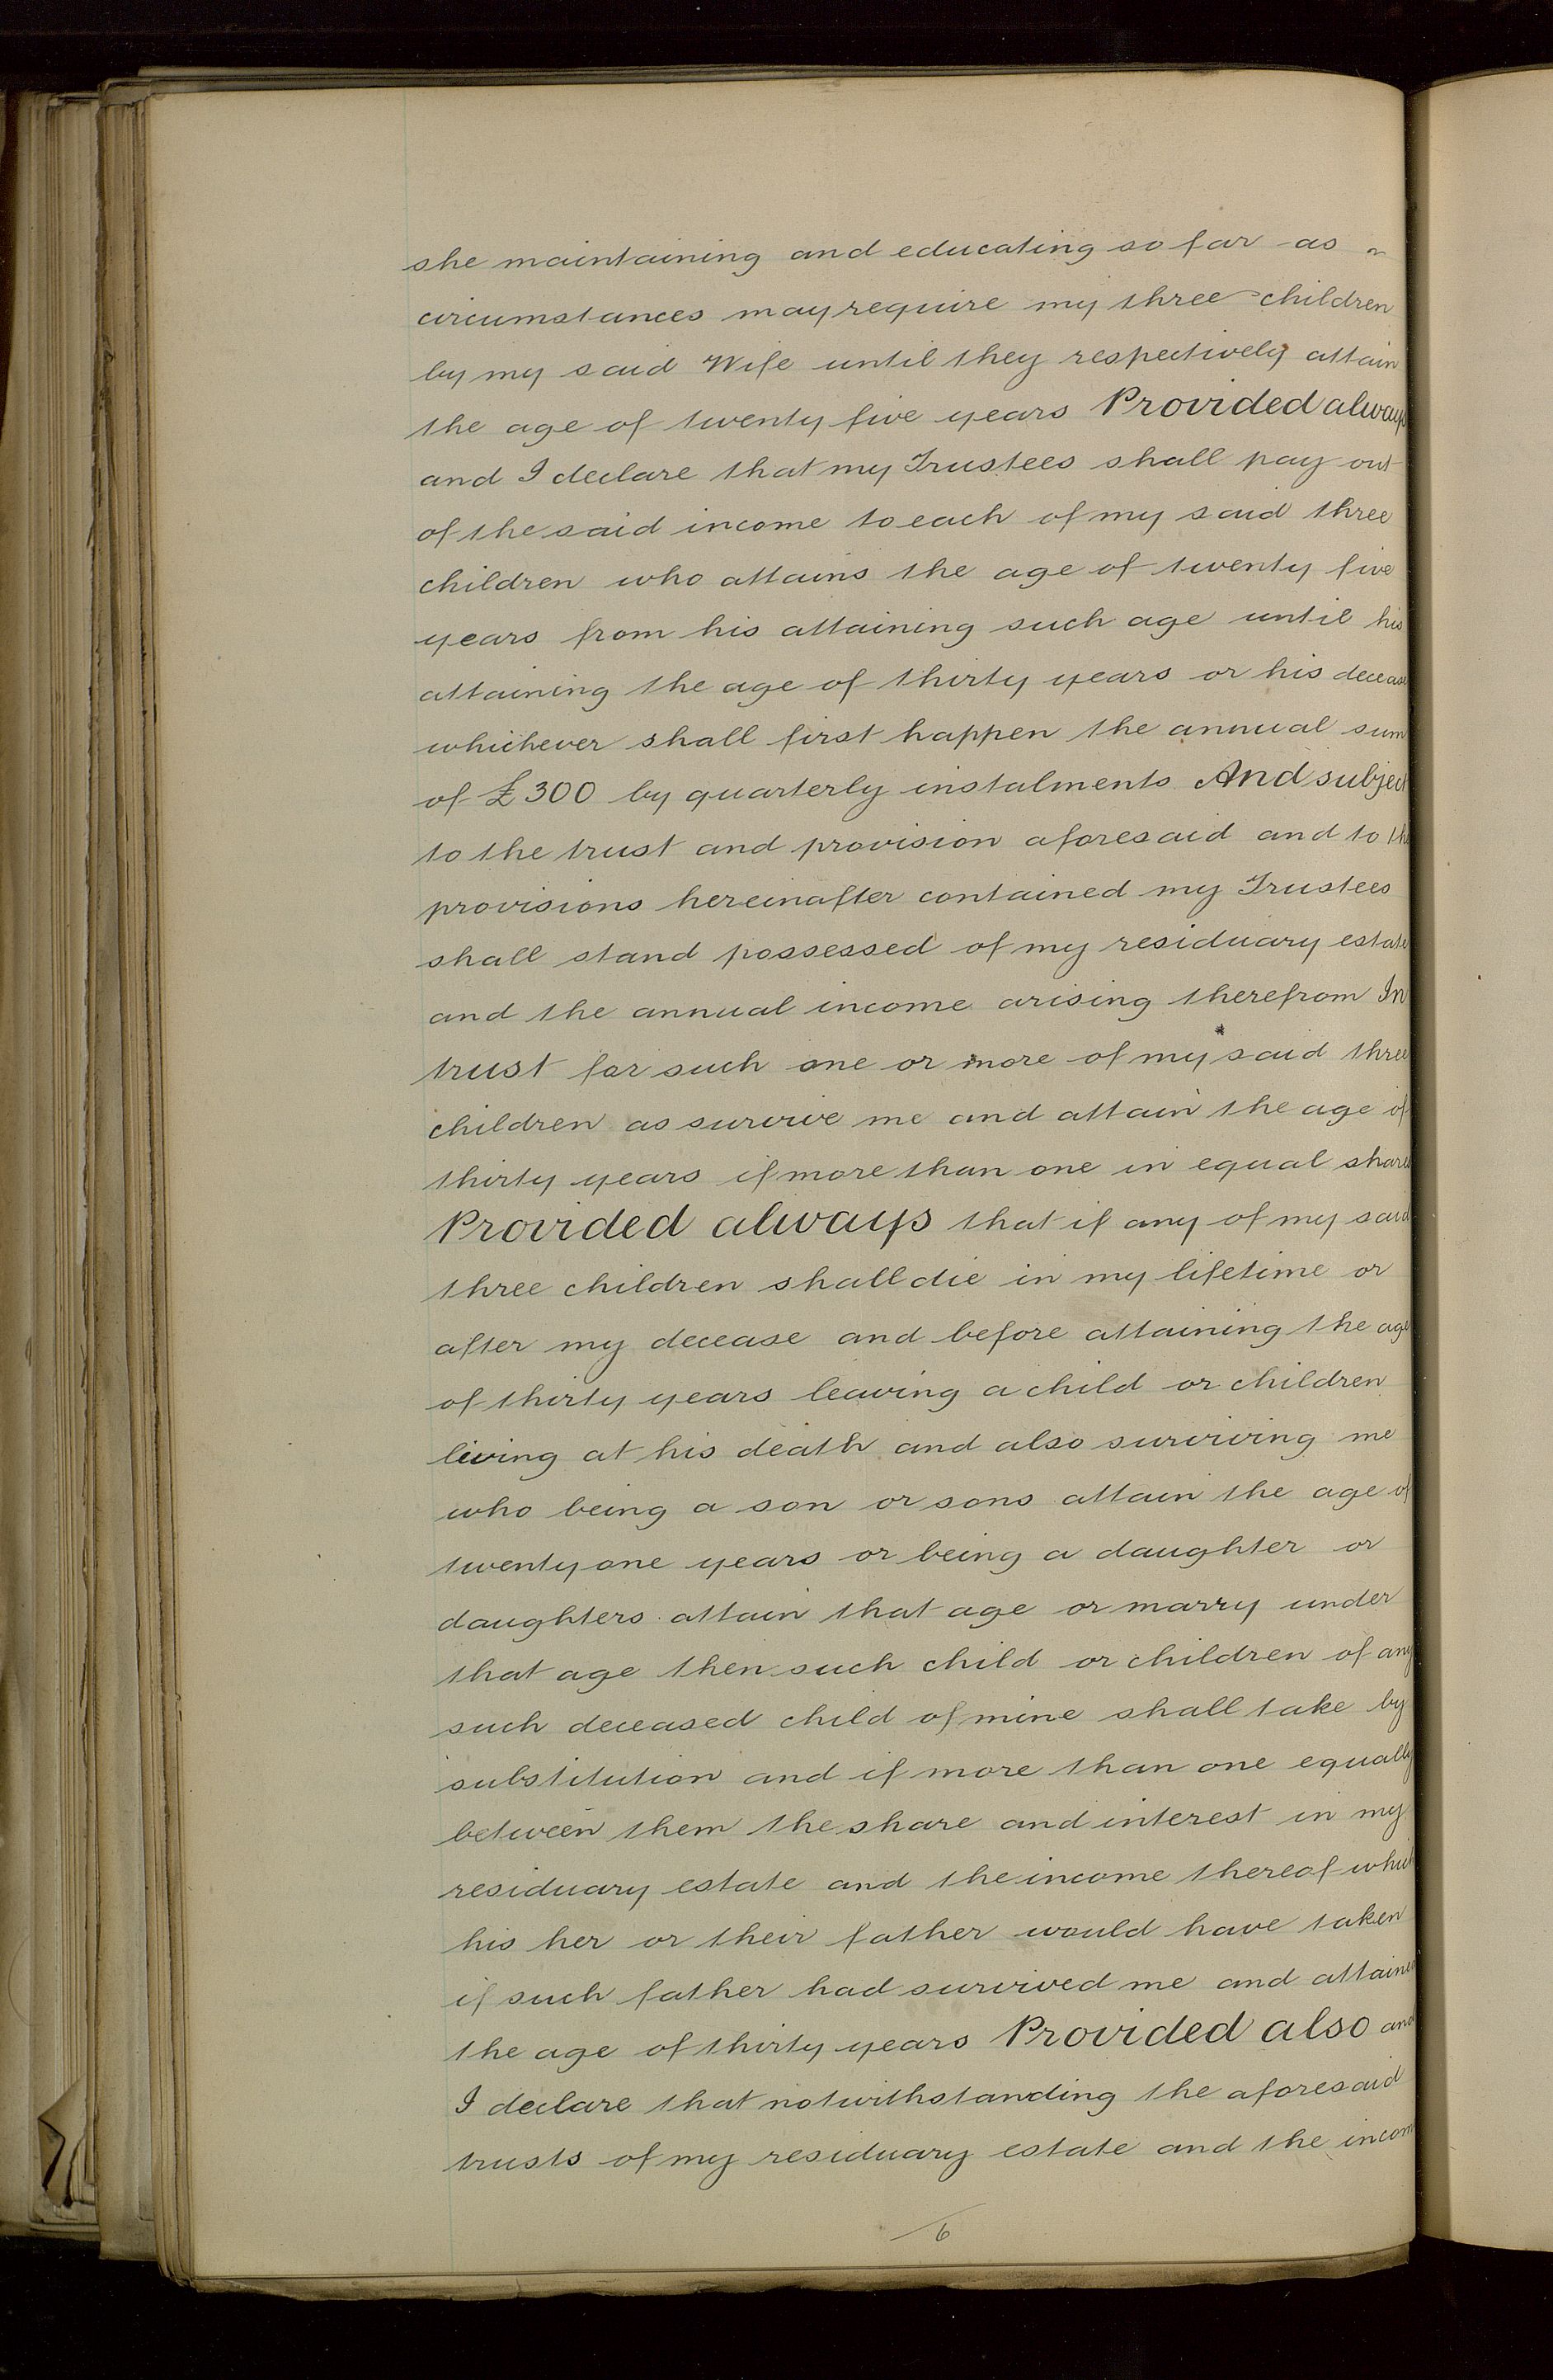 she maintaining and educating so far as
circumstances may require my three children
by my said Wife until they respectively attain
the age of twenty five years Provided always
and I declare that my Trustees shall pay out
of the said income to each of my said three
children who attains the age of twenty five
years from his attaining such age until his
attaining the age of thirty years or his decease
whichever shall first happen the annual sum
of £300 by quarterly instalments And subject
to the trust and provision aforesaid and to the
provisions hereinafter contained my Trustees
shall stand possessed of my residuary estate
and the annual income arising therefrom In
trust for such one or more of my said three
children as survive me and attain the age of
thirty years if more than one in equal shares
Provided always that if any of my said
three children shall die in my lifetime or
after my decease and before attaining the age
of thirty years leaving a child or children
living at his death and also surviving me
who being a son or sons attain the age of
twenty one years or being a daughter or
daughters attain that age or marry under
that age then such child or children of any
such deceased child of mine shall take by
substitution and if more than one equally
between them the share and interest in my
residuary estate and the income thereof which
his her or their father would have taken
if such father had survived me and attained
the age of thirty years Provided also and
I declare that notwithstanding the aforesaid
trusts of my residuary estate and the income
6